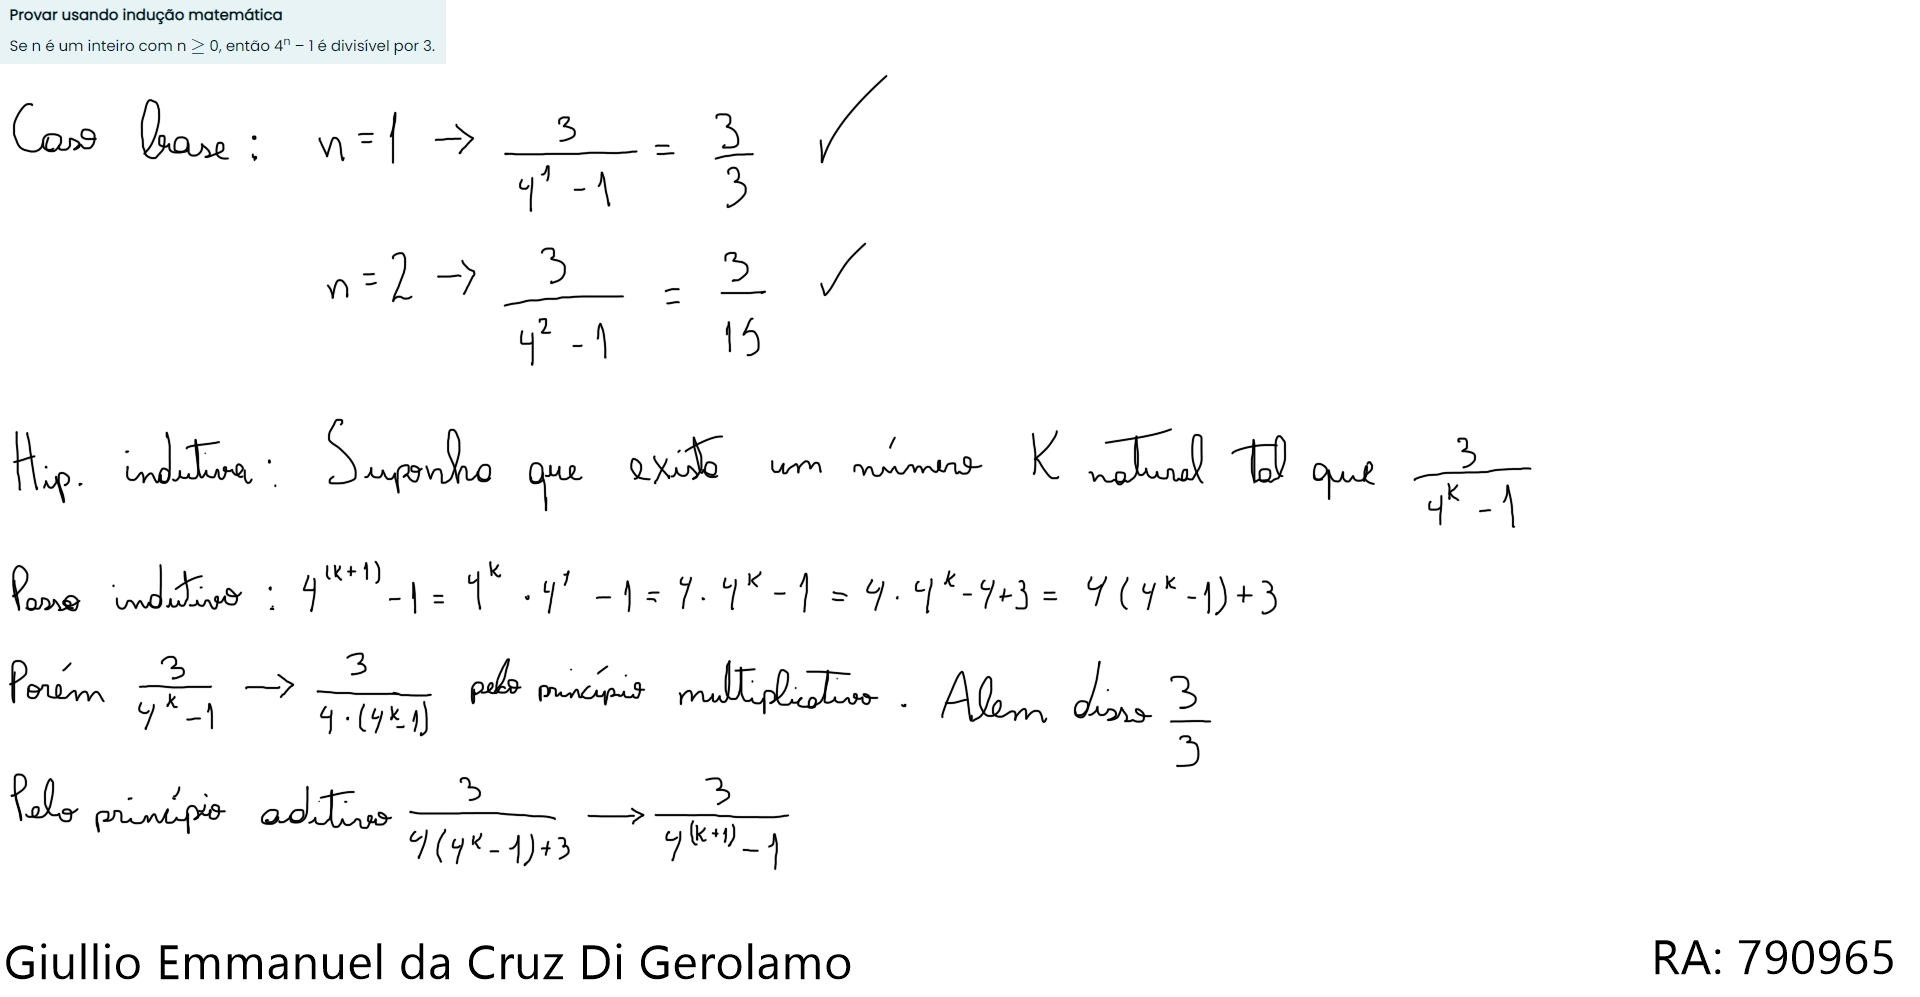 Provar usando indução matemática
Se n é um inteiro com n ≥ 0, então 4ⁿ – 1 é divisível por 3.
Caso base: n=1 → 3/(4^1 - 1) = 3/3 ✓
n=2 → 3/(4^2 - 1) = 3/15 ✓
Hip. indutiva: Suponha que exista um número K natural tal que 3/(4^k - 1)
Passo indutivo: 4^(k+1) - 1 = 4^k · 4^1 - 1 = 4 · 4^k - 1 = 4 · 4^k - 4 + 3 = 4(4^k - 1) + 3
Porém 3/(4^k - 1) → 3/(4 · (4^k - 1)) pelo princípio multiplicativo. Alem disso 3/3
Pelo princípio aditivo 3/(4(4^k - 1) + 3) → 3/(4^(k+1) - 1)
Giullio Emmanuel da Cruz Di Gerolamo
RA: 790965